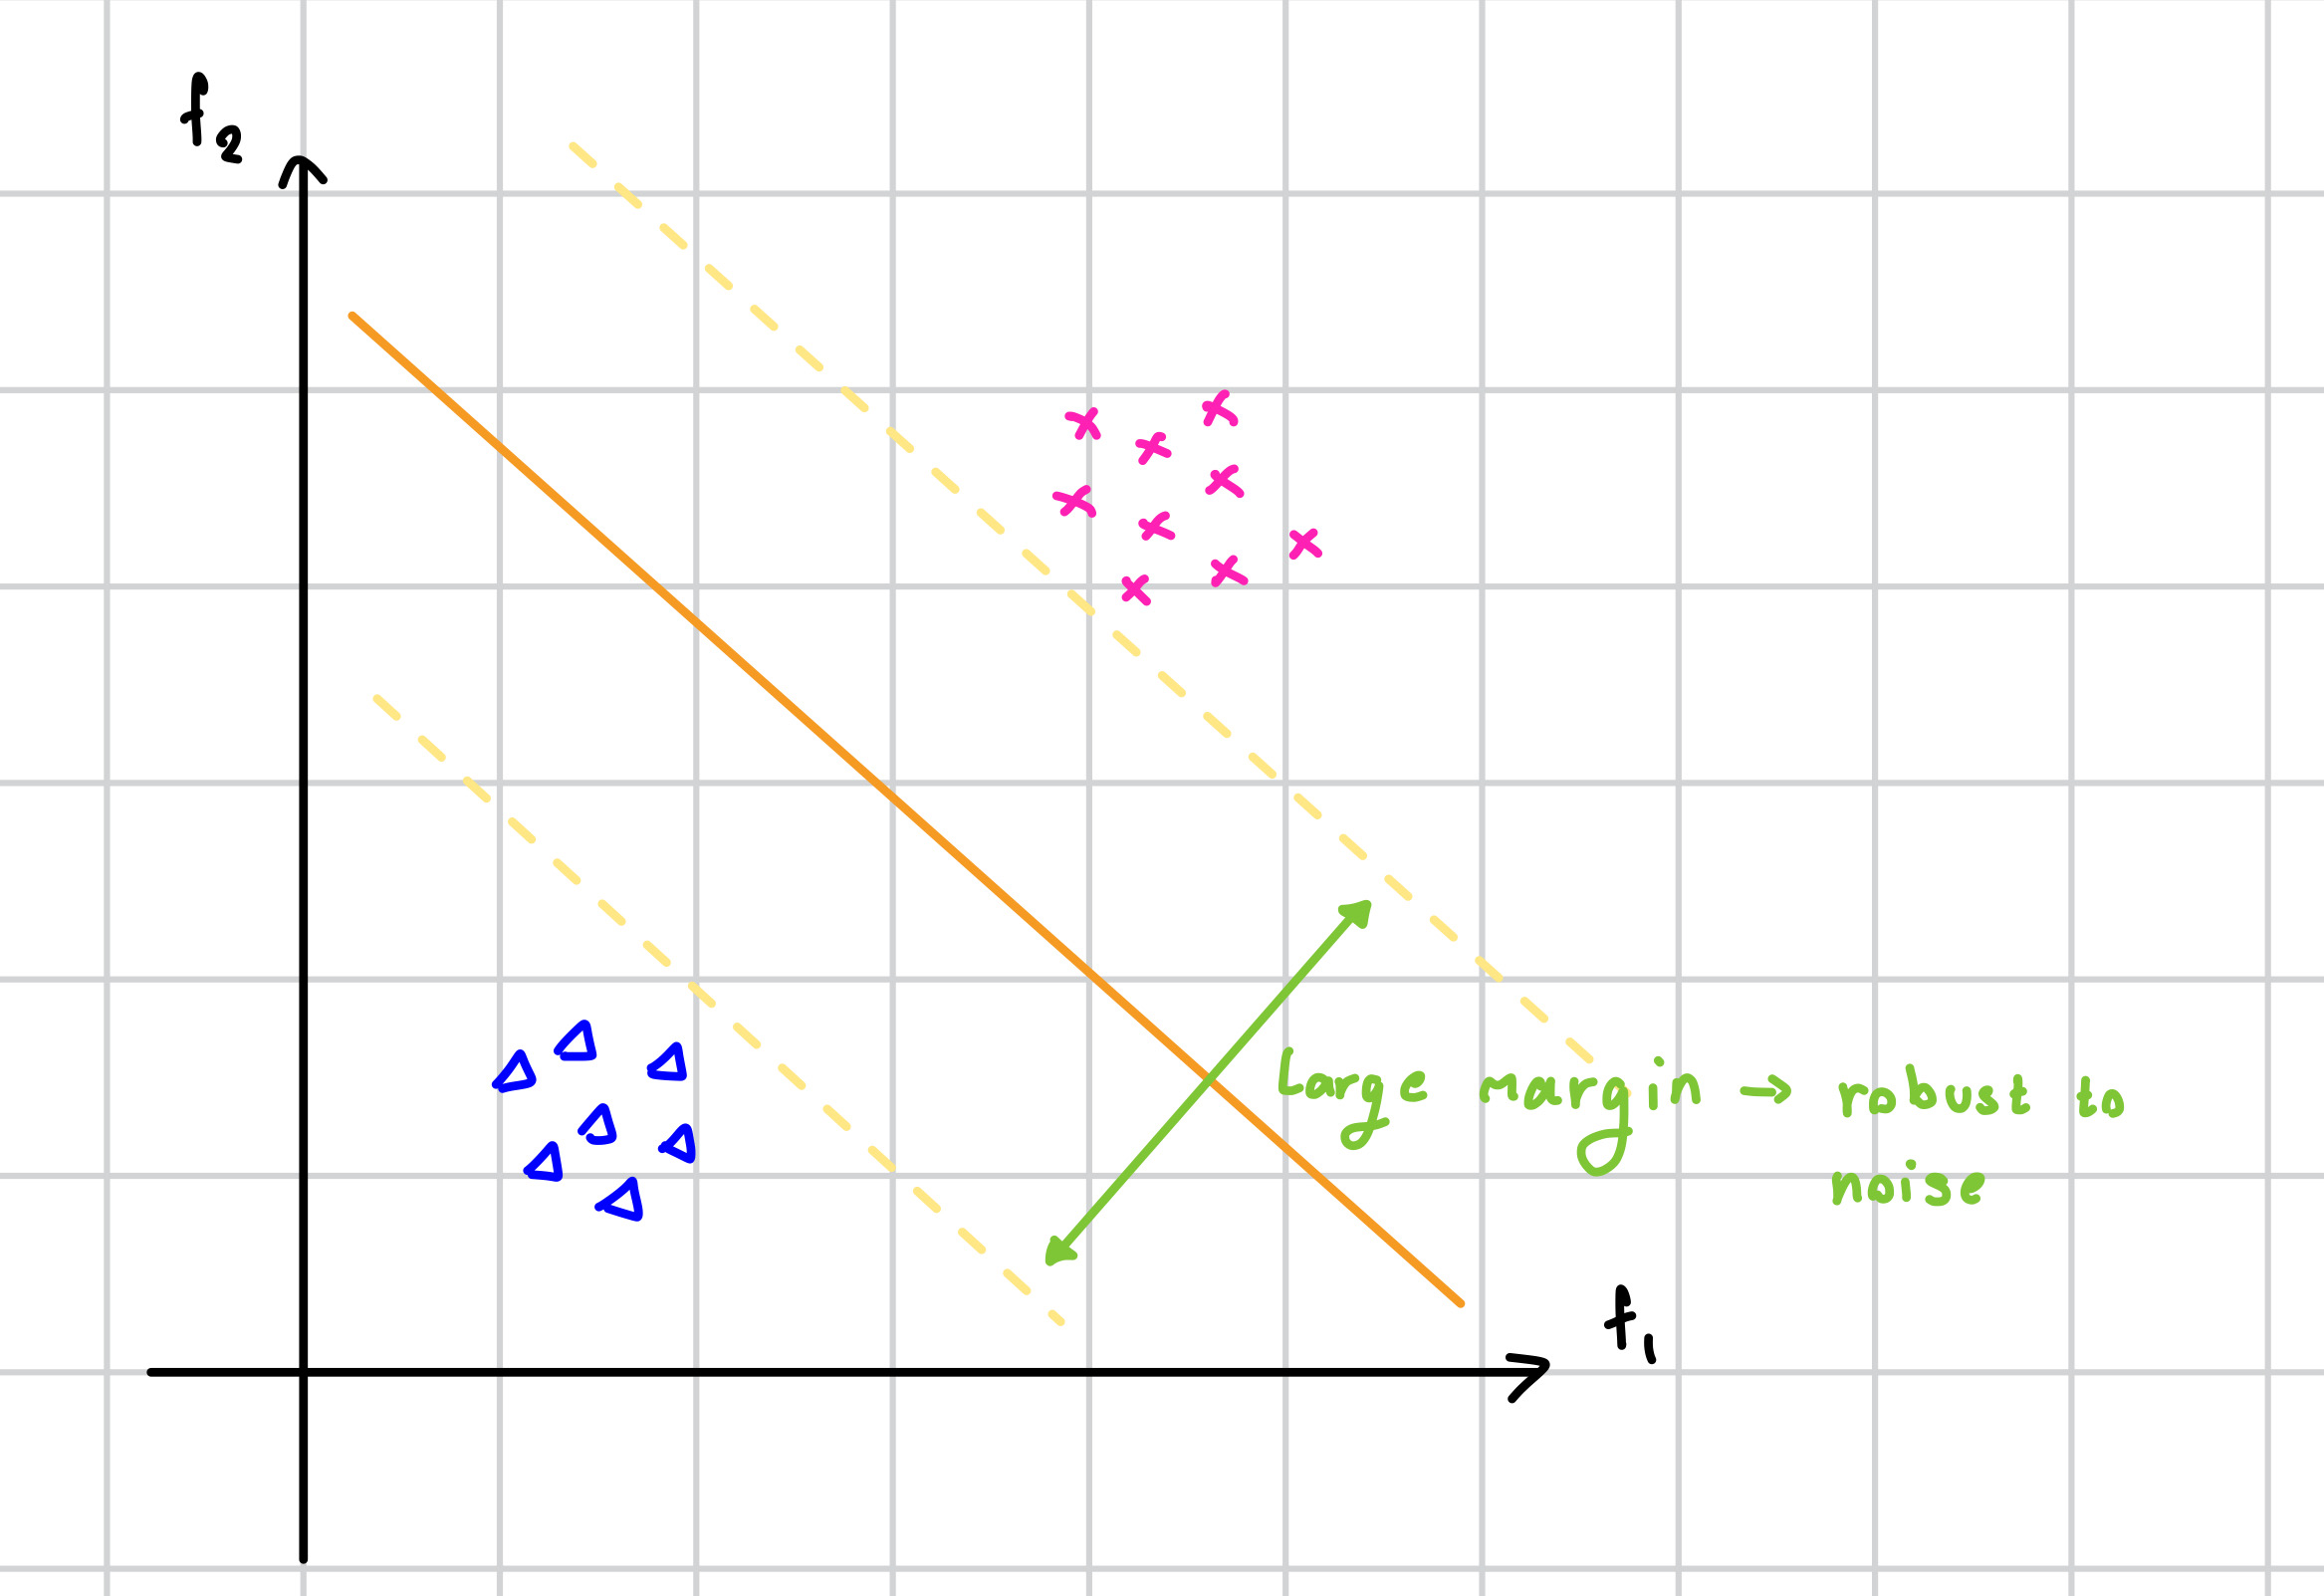 f₂
Large margin -> robust to
noise
f₁